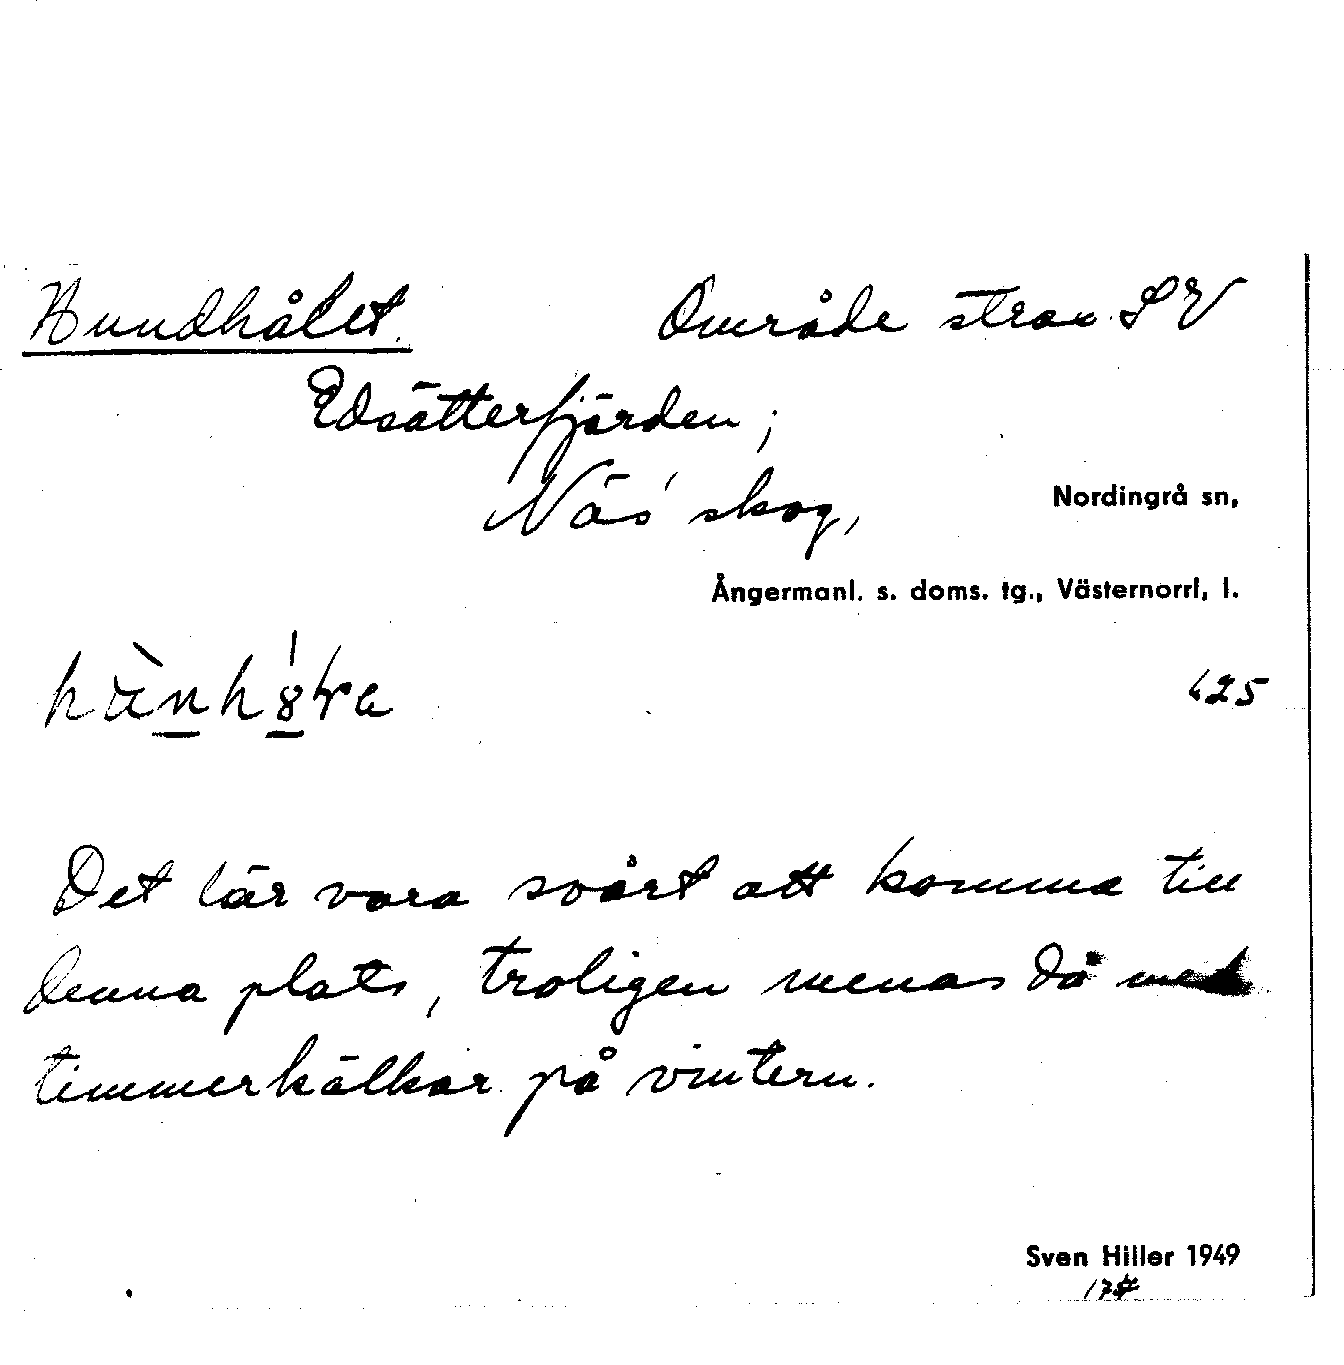 Hundhålet. Område strax SV
Edsätterfjärden;
Näs' skog, Nordingrå sn,
Ångermanl. s. doms. tg., Västernorrl, l.
625
Det lär vara svårt att komma till
denna plats, troligen menas då med
timmerkälkar på vintern.
Sven Hiller 1949